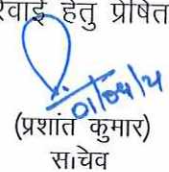 रवाई हेतु प्रेषित
01/04/21
(प्रशांत कुमार)
सचिव